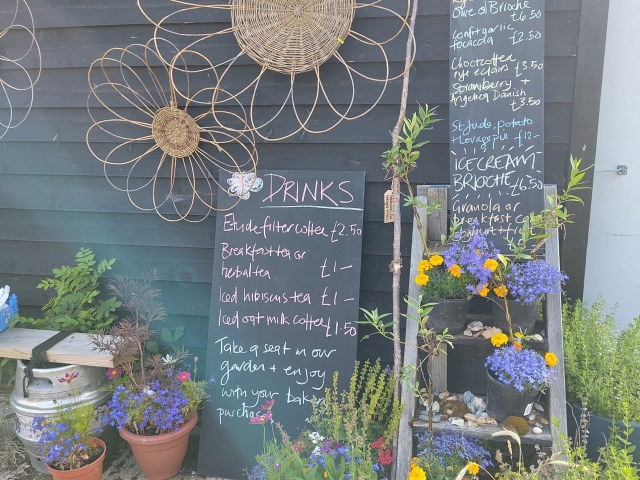 DRINKS
Etude filter coffee £2.50
Breakfast tea or
herbal tea £1-
Iced hibiscus tea £1-
Iced oat milk coffee £1.50
Take a seat in our
garden + enjoy
with your bakery
purchase
Brioche
£6.50
Confit garlic
focaccia £2.50
Choc coffee
rye eclairs £3.50
Strawberry +
Angelica Danish
£3.50
St Jude, potato
+ Lovage pie £12-
ICE CREAM
BRIOCHE £6.50
Granola or
breakfast
yoghurt + fruit